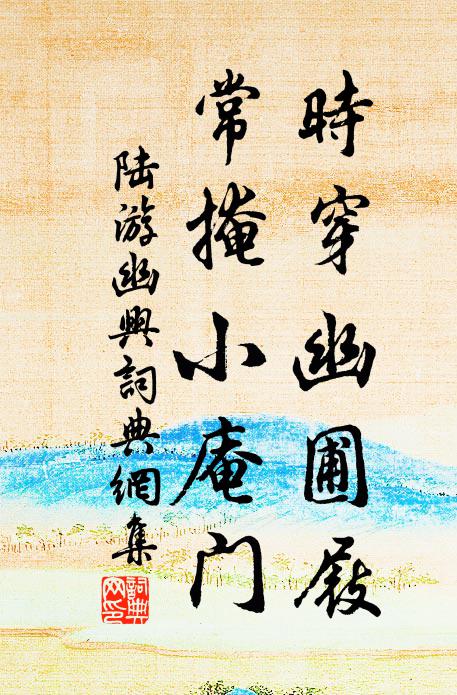 時穿幽圃屐
常掩小庵門
陸游幽興詞典網集
詞典網印